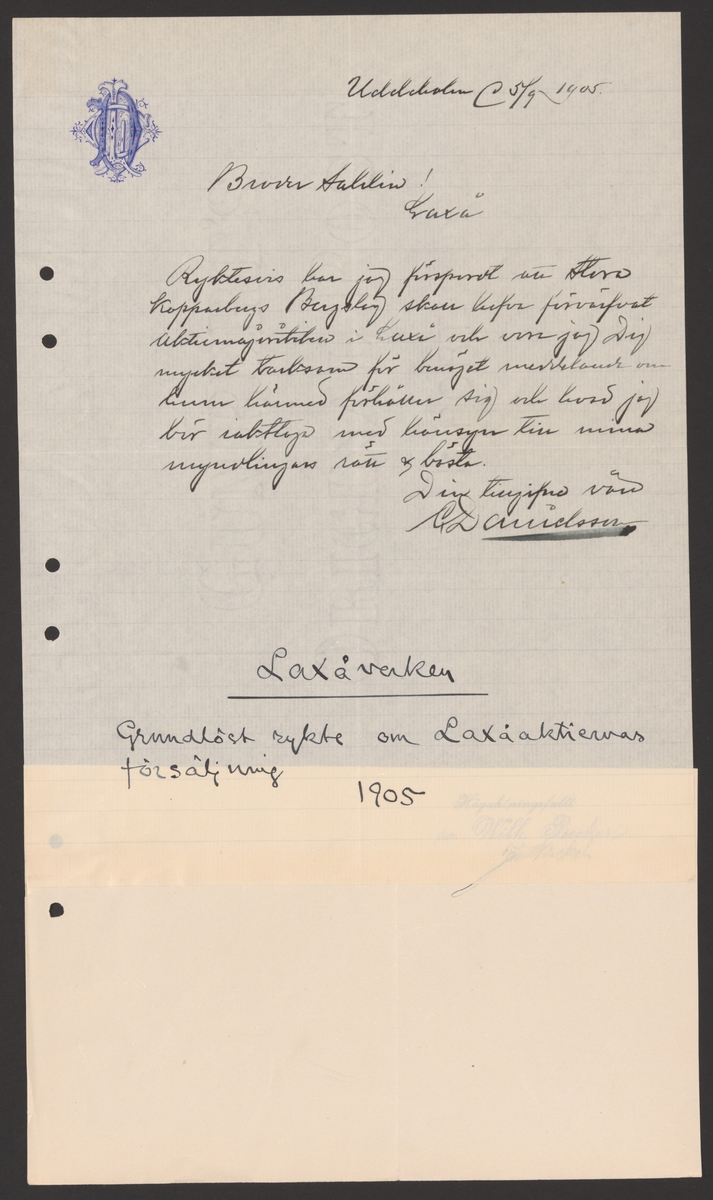 Uddeholm C 5/9 1905.
Broder Sahlin!
Laxå
Ryktesvis har jag försport att Stora
Kopparbergs Bergslag skall hafva förvärfvat
Aktiemajoriteten i Laxå och vore jag Dig
mycket tacksam för benäget meddelande om
huru härmed förhåller sig och hvad jag
bör iakttaga med hänsyn till mina
myndlingars rätt & bästa.
Din tillgifne vän
C Danielsson
Laxåverken
Grundlöst rykte om Laxåaktiernas
försäljning
1905
Högaktningsfullt
Wilh.